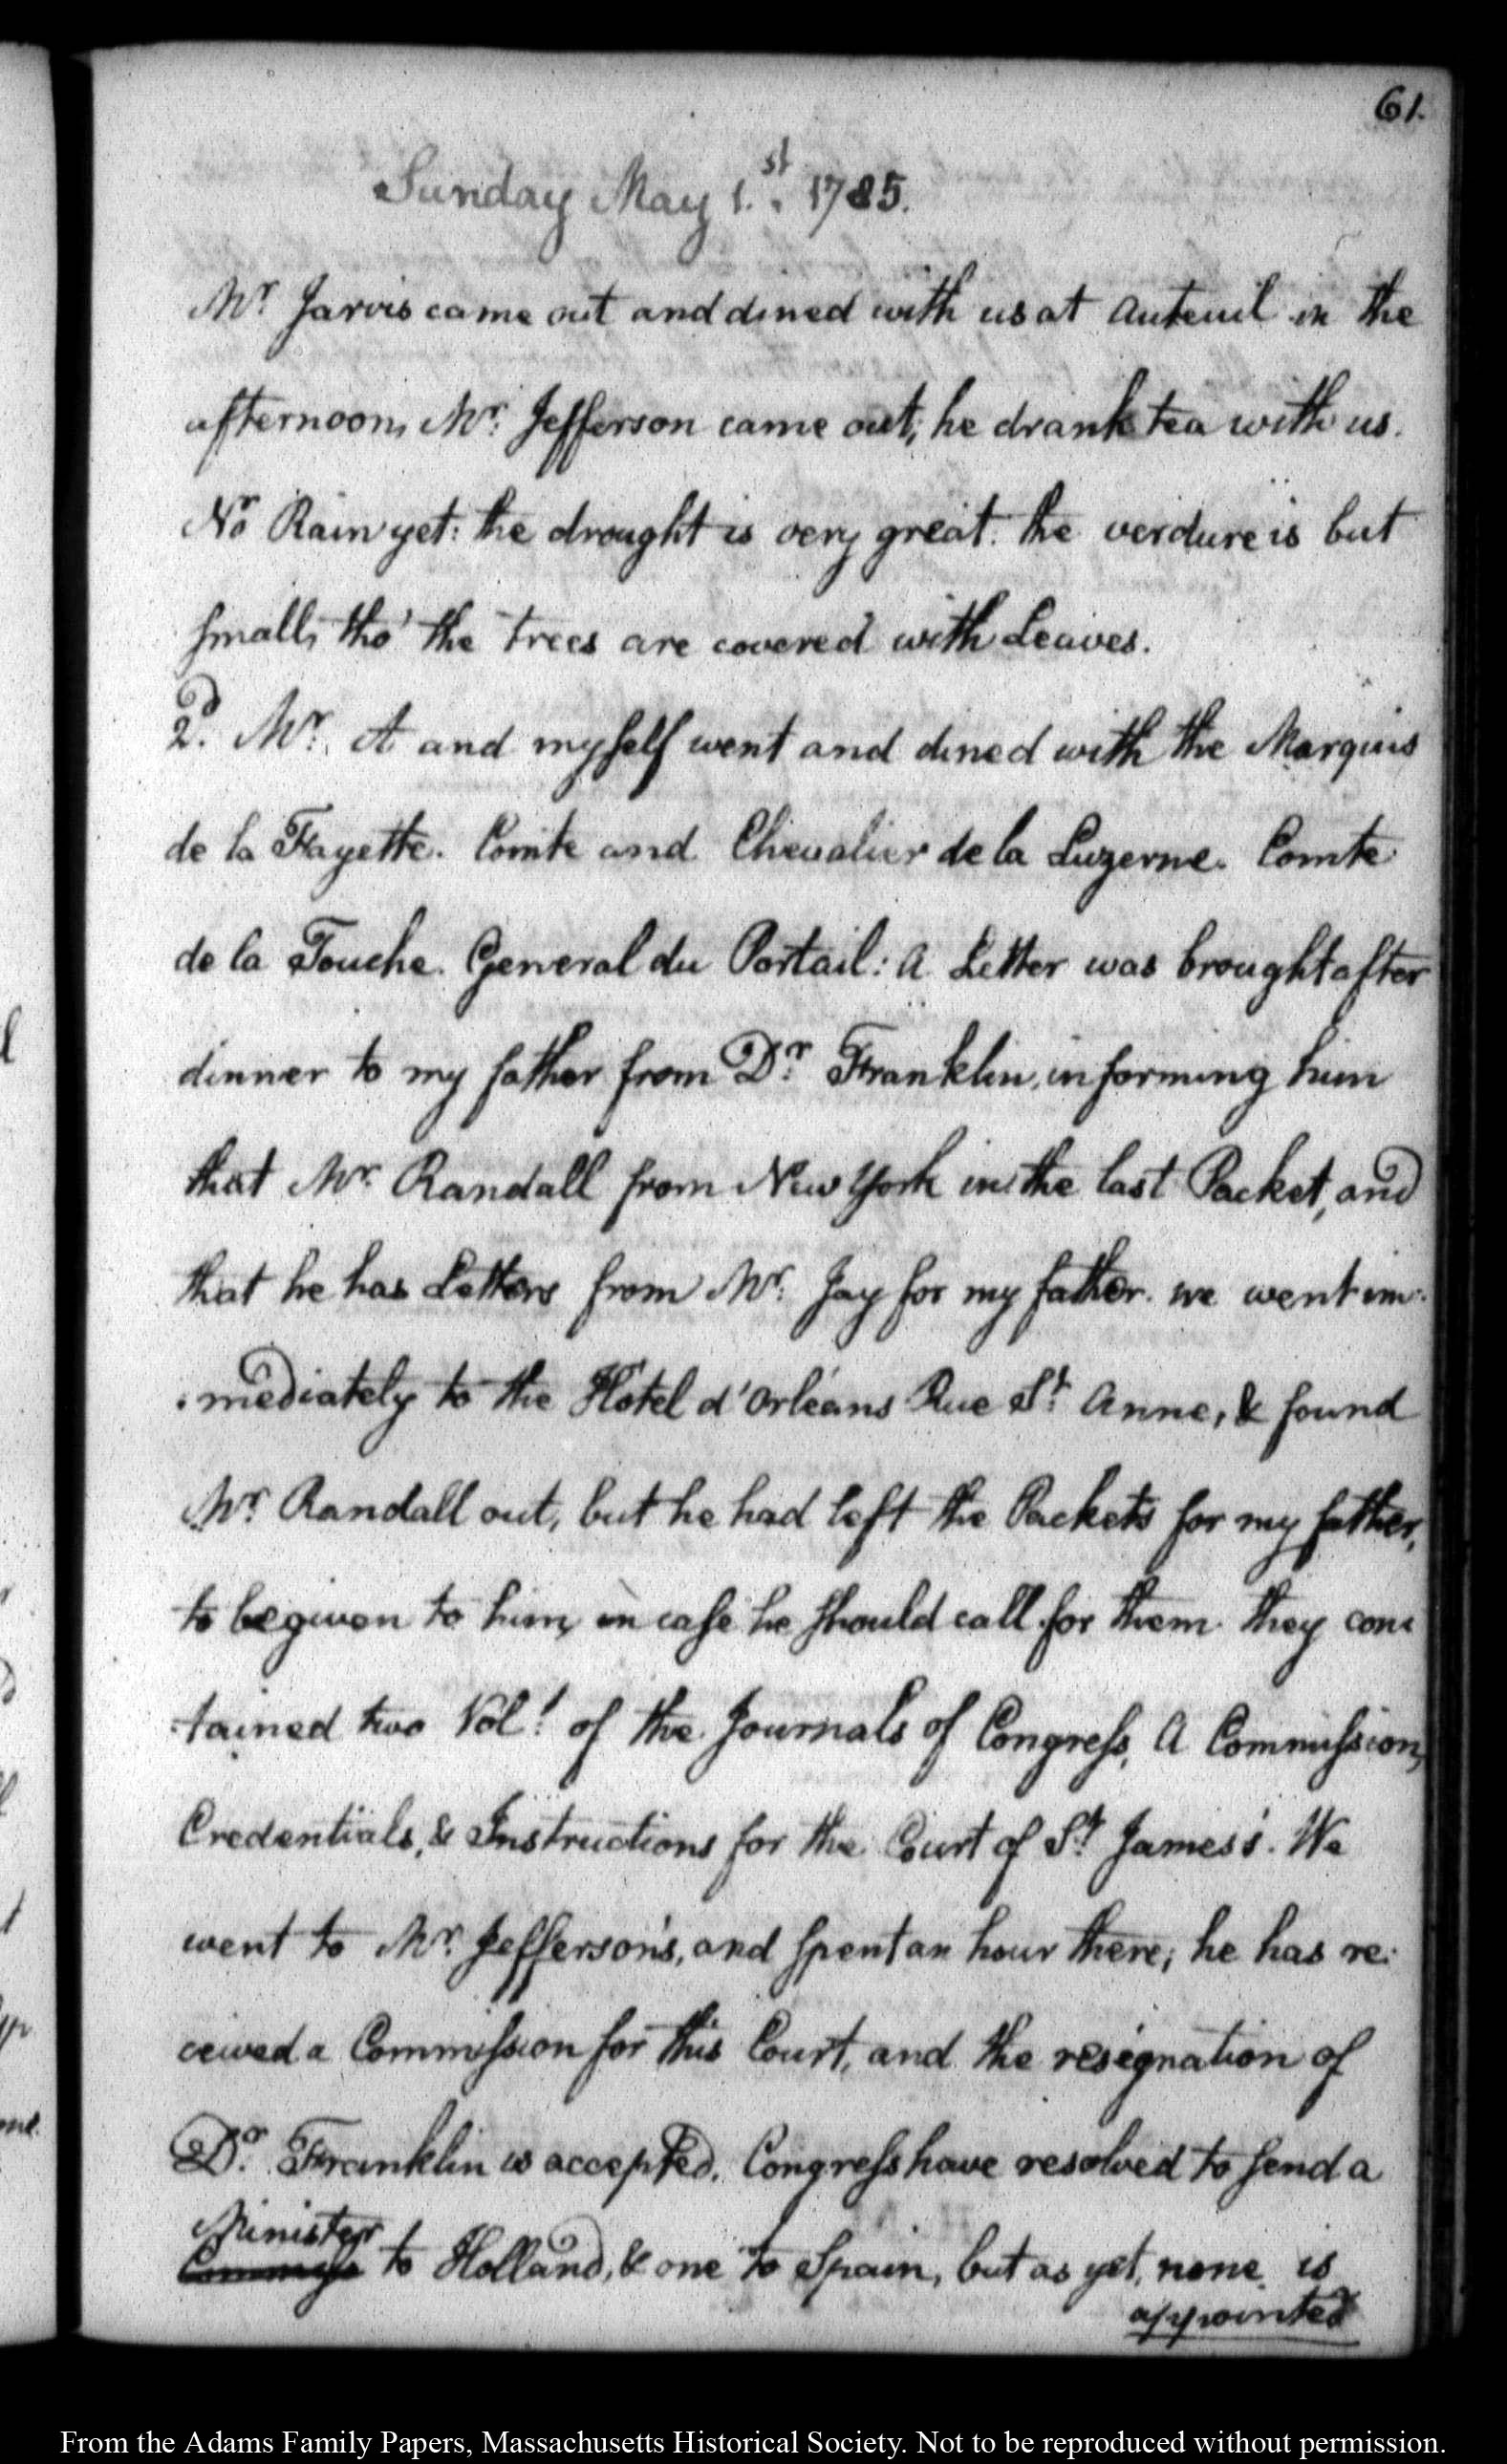 61.
Sunday May 1.st 1785.
Mr. Jarvis came out and dined with us at Auteuil in the
afternoon, Mr. Jefferson came out; he drank tea with us.
No Rain yet: the drought is very great. the verdure is but
small, tho' the trees are covered with Leaves.
2d. Mr. A and myself went and dined with the Marquis
de la Fayette. Comte and Chevalier de la Luzerne. Comte
de la Touche. General du Portail: A Letter was brought after
dinner to my father from Dr. Franklin, informing him
that Mr. Randall from New York in the last Packet, and
that he has Letters from Mr. Jay for my father. we went im:
:mediately to the Hôtel d'Orléans Rue St. Anne, & found
Mr. Randall out, but he had left the Packets for my father,
to be given to him, in case he should call for them. they con:
:tained two Vols. of the Journals of Congress, A Commission,
Credentials, & Instructions for the Court of St. James's. We
went to Mr. Jefferson's, and spent an hour there; he has re:
ceived a Commission for this Court, and the resignation of
Dr. Franklin is accepted. Congress have resolved to send a
Minister
to Holland, & one to Spain, but as yet, none is
appointed
From the Adams Family Papers, Massachusetts Historical Society. Not to be reproduced without permission.